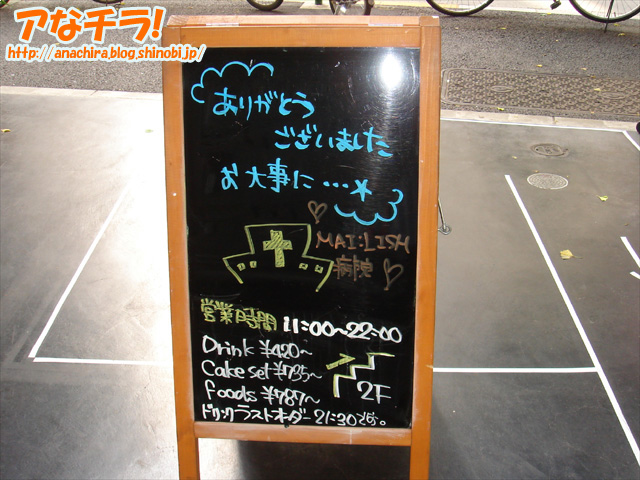 アなチラ!
http://anachira.blog.shinobi.jp/
ありがとう
ございました
お大事に…☆
MAI:LISH
病院
営業時間 11:00~22:00
Drink ¥420~
Cake set ¥735~
foods ¥787~
2F
ドリンクラストオーダー21:30です。